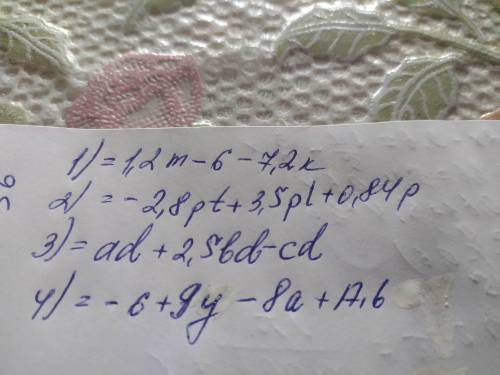 1) = 1,2m - 6 - 7,2k
2) = - 2,8pt + 3,5pl + 0,84p
3) = ad + 2,5bd - cd
4) = - 6 + 9y - 8a +